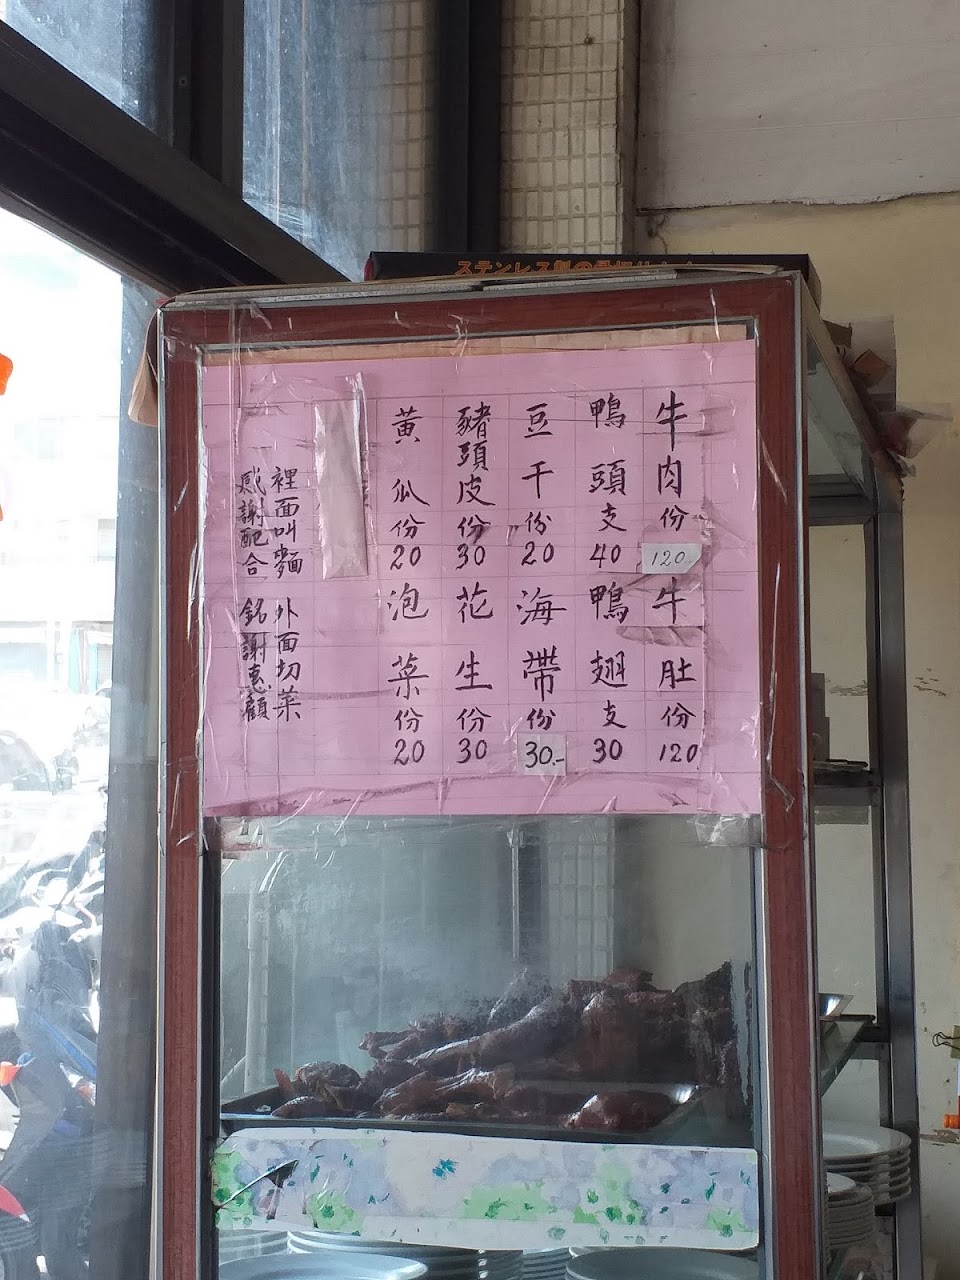 ステンレス製の
牛肉份120.
鴨頭支40
豆干份20
豬頭皮份30
黃瓜份20
牛肚份120
鴨翅支30
海帶份30.-
花生份30
泡菜份20
裡面叫麵 外面切菜
感謝配合 銘謝惠顧